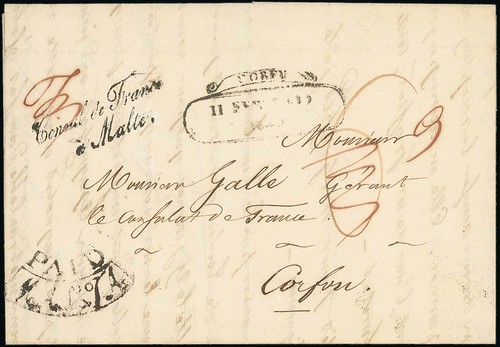 Consul de France
à Malte.
CORFU
11
Monsieur
Monsieur Galle Gérant
le consulat de France
Corfou.
PAID
AT